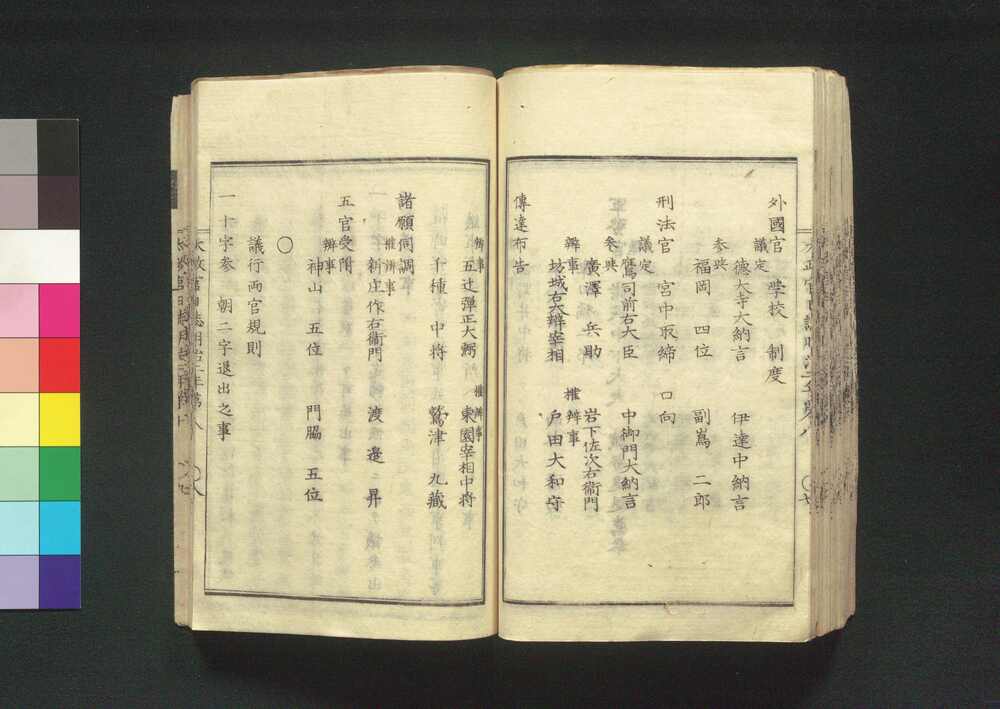 外國官 學校 制度
議定
德大寺大納言 伊達中納言
参與
福岡 四位 副嶌 二郎
刑法官 宮中取締 口向
議定
鷹司前右大臣 中御門大納言
参與
廣澤 兵助 岩下佐次右衞門
辨事 權辨事
坊城右大辨宰相 戸田大和守
傳達布告
辨事 權辨事
五辻彈正大弼 東園宰相中將
千種 中將 鷲津 九藏
諸願伺調
權辨事
新庄作右衞門 渡邉 昇
五官受附
辨事
神山 五位 門脇 五位
〇
議行両官規則
一十字参 朝二字退出之事